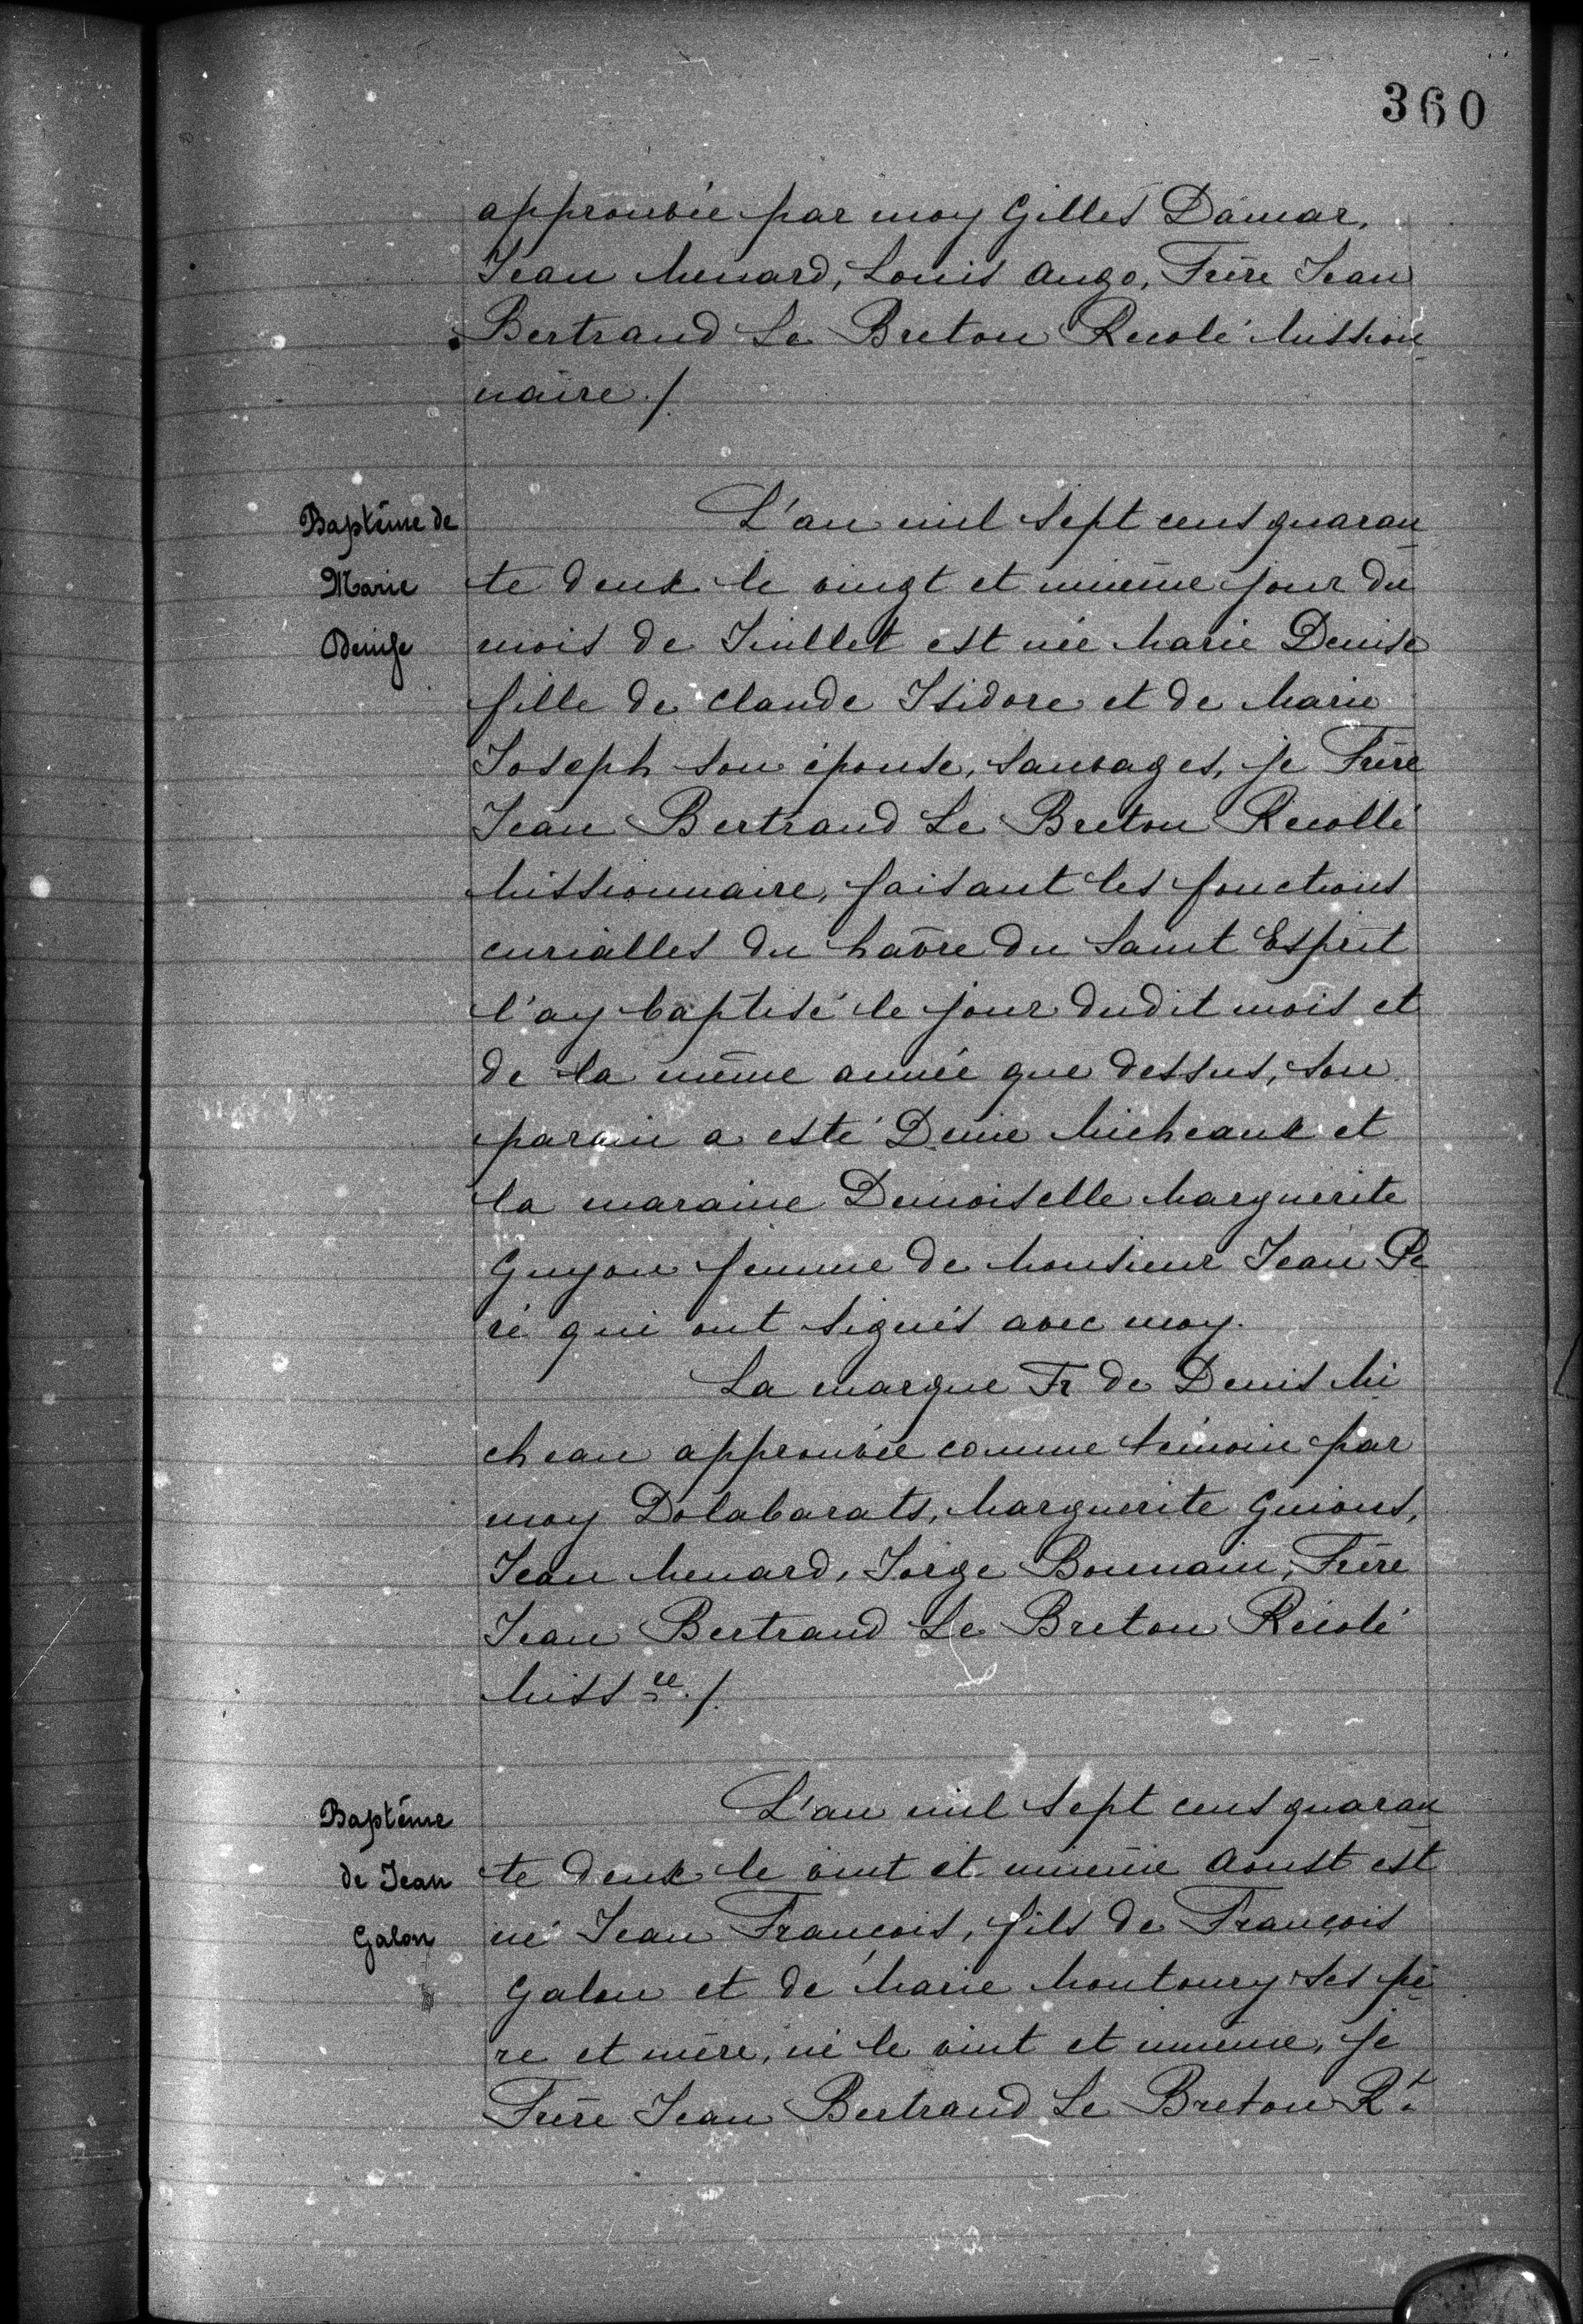 360
approuvée par moy Gilles Damar,
Jean Menard, Louis Ango, Frère Jean
Bertrand Le Breton Recolé Mission
naire ./.
Baptême de
Marie
Denise
L'an mil sept cens quaran
te deux le vingt et unième jour du
mois de Juillet est née Marie Denise
fille de Claude Isidore et de Marie
Joseph son épouse, sauvages, je Frère
Jean Bertrand Le Breton Recollé
Missionnaire, faisant les fonctions
curialles du havre du Saint Esprit
l'ay baptisé le jour dudit mois et
de la même année que dessus, son
parain a esté Denie Micheaux et
la maraine Demoiselle Marguerite
Guyon femme de Monsieur Jean Pe
ré qui ont signés avec moy.
La marque Fr de Denis Mi
cheau approuvée comme témoin par
moy Dolabarats, Marguerite Guions,
Jean Menard, Jorge Bonnain, Frère
Jean Bertrand Le Breton Récolé
Miss re ./.
Baptême
de Jean
Galon
L'an mil sept cens quaran
te deux le vint et unième Aoust est
né Jean François, fils de François
Galon et de Marie Montoury ses pè
re et mère, né le vint et unième, je
Frère Jean Bertrand Le Breton Rt.